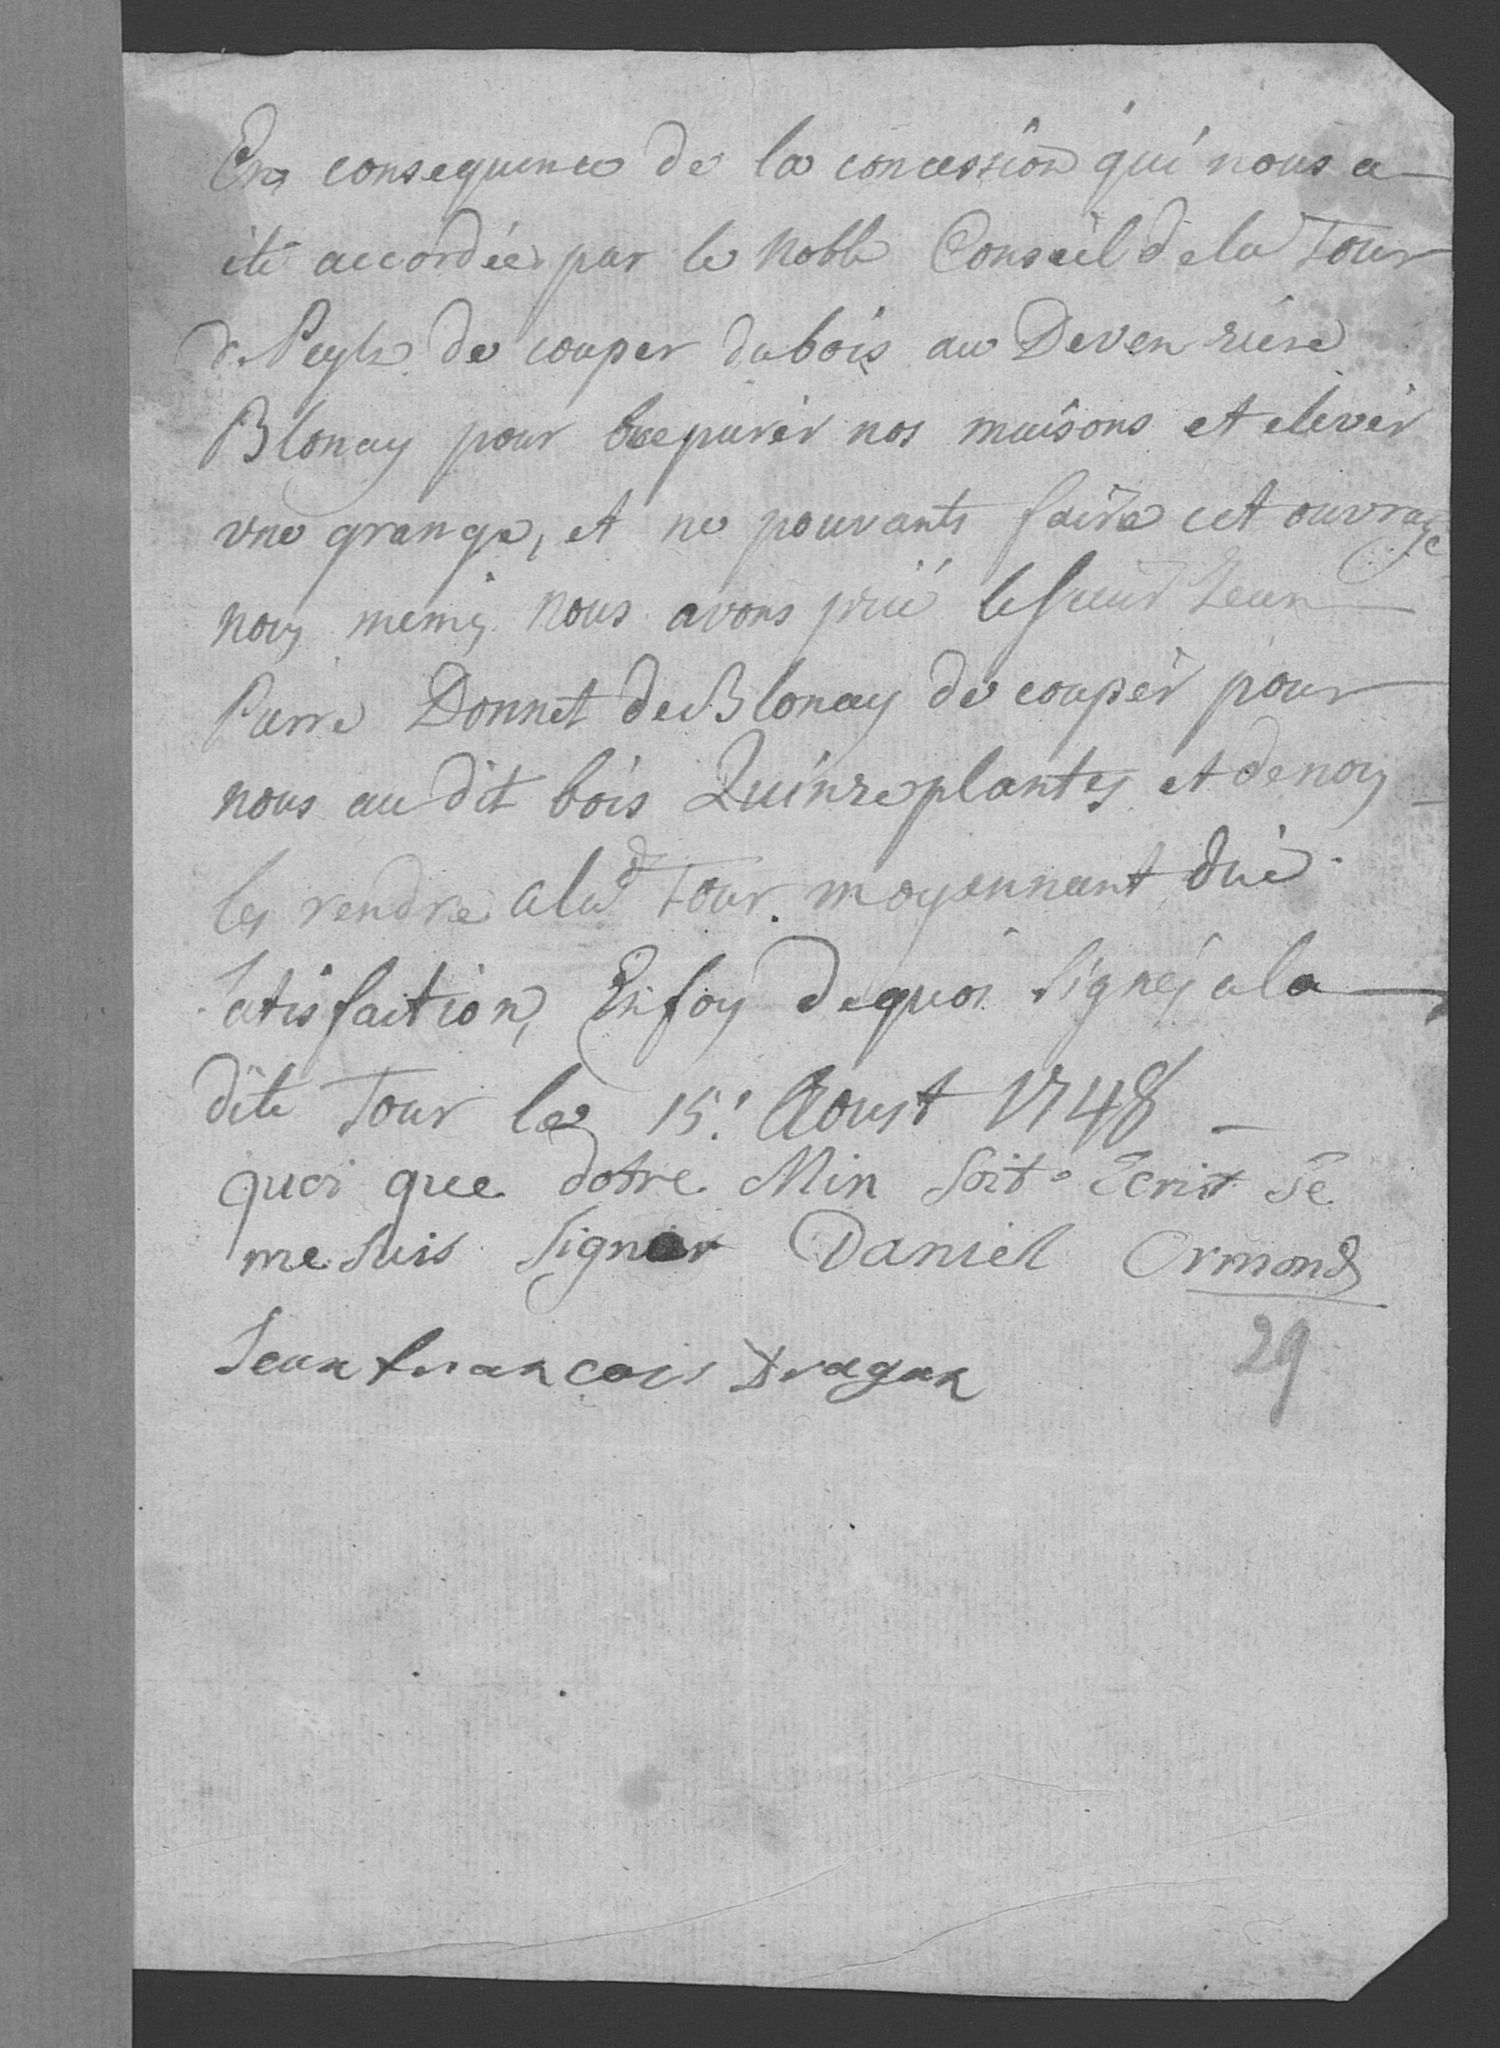 En consequence de la concession qui nous a
été accordée par le Noble Conseil de la Tour
de Peylz de couper du bois au Deven riere
Blonay pour reparer nos maisons et elever
une grange, et ne pouvants faire cet ouvrage
nous memes nous avons prié le sieur Jean
Pierre Donnet de Blonay de couper pour
nous au dit bois Quinze plantes et de nous
les rendre a lad Tour moyennant düe
satisfaition, En foy de quoi signés a la
dite Tour le 15: Aoust 1748
quoi que dotre Min soit Ecrit Je
me suis Signer Daniel Ormond
Jean francois Dragan
29